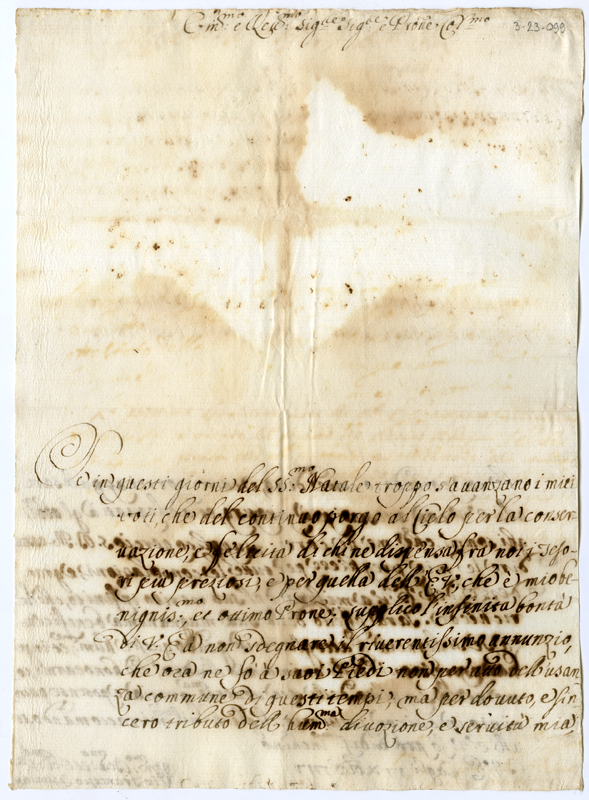 Em.mo e Reu.mo Sig.re Sig.re e Prone Col.mo
3-23-099
Se in questi giorni del SS.mo Natale troppo s'auanzano i miei
voti, che del continuo porgo al Cielo per la conser
uazione, e felicità di chi ne dispensa fra noi i Teso-
ri più preziosi, e per quella dell' E.V., che è mio be
nignis.mo et ottimo Prone, supplico l'infinita bontà
di V. E. a non sdegnare il riuerentissimo annunzio,
che ora ne fò a suoi Piedi non per uso dell' usan
za commune di questi tempi, ma per douuto, e sin
cero tributo dell' hum.ma diuozione, e seruitù mia,